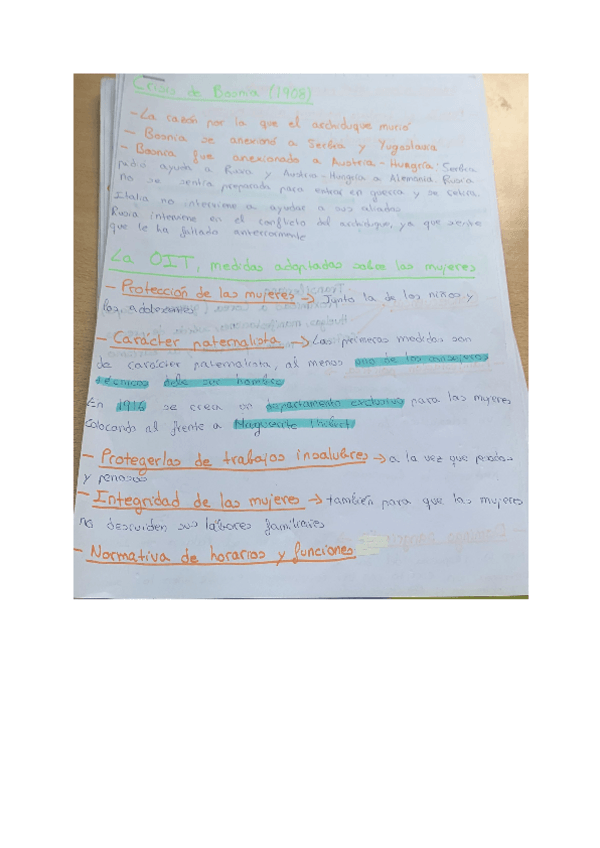 Crisis de Bosnia (1908)
- La razón por la que el archiduque murió
- Bosnia se anexionó a Serbia y Yugoslavia
- Bosnia fue anexionada a Austria-Hungría: Serbia
pidió ayuda a Rusia y Austria-Hungría a Alemania. Rusia
no se sentía preparada para entrar en guerra y se retira.
Italia no interviene a ayudar a sus aliados
Rusia interviene en el conflicto del archiduque, ya que siente
que le ha fallado anteriormente
La OIT, medidas adoptadas sobre las mujeres
- Protección de las mujeres → Junto la de los niños y
los adolescentes
- Carácter paternalista → Las primeras medidas son
de carácter paternalista, al menos uno de los consejeros
técnicos debe ser hombre
En 1916 se crea un departamento exclusivo para las mujeres
colocando al frente a Marguerite Thibert
- Protegerlas de trabajos insalubres → a la vez que pesados
y penosos
- Integridad de las mujeres → también para que las mujeres
no descuiden sus labores familiares
- Normativa de horarios y funciones